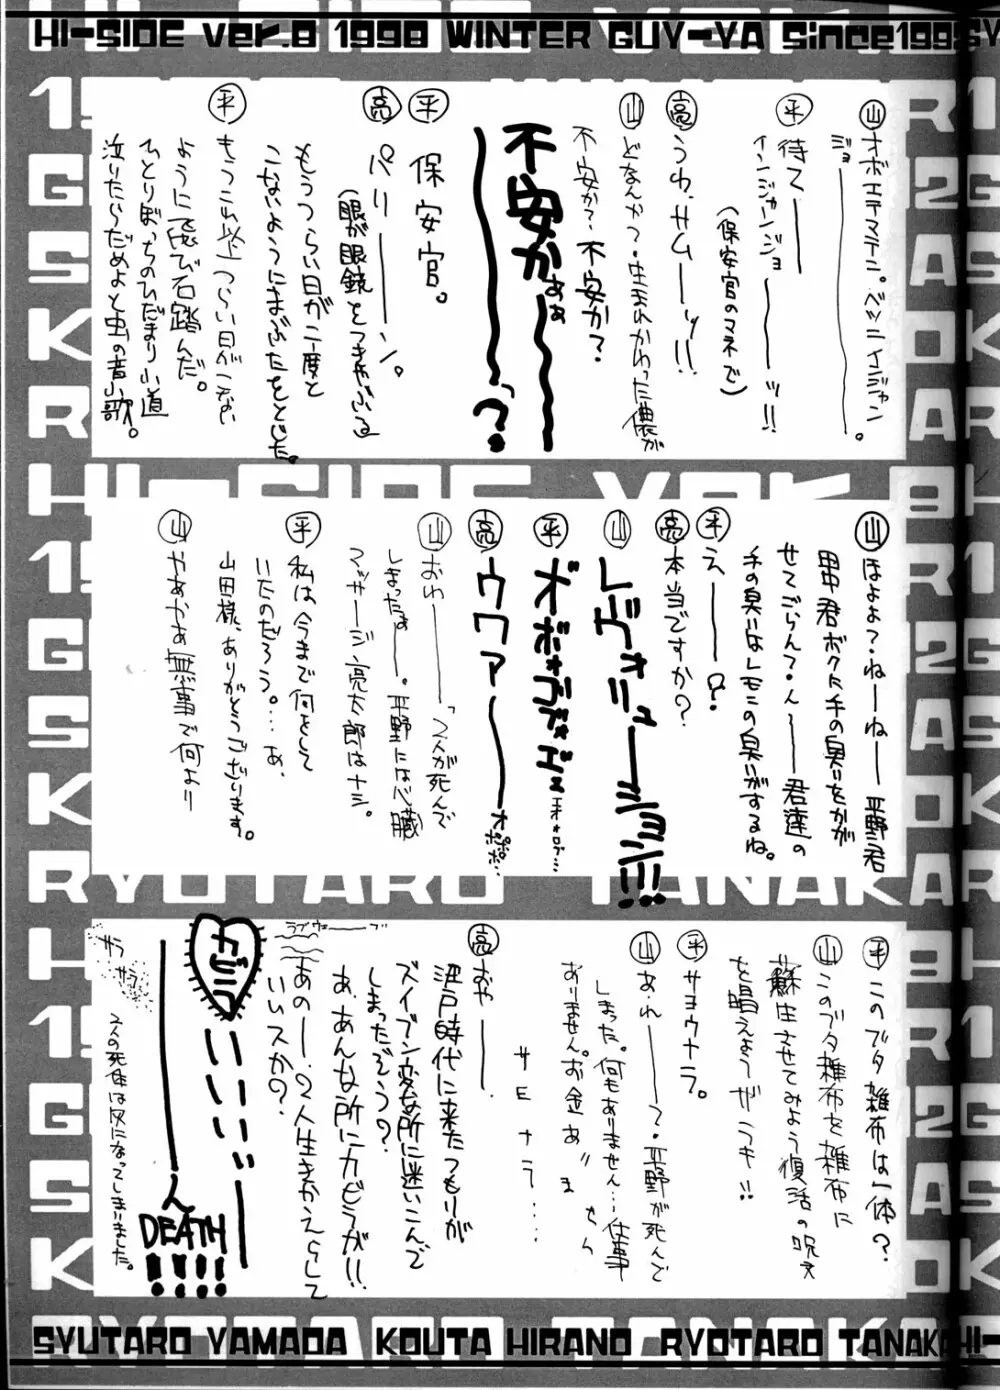 HI-SIDE ver.8 1998 WINTER GUY-YA Since199
山 オボエテマテニ。ベツニイイジャン
ジョ――――。
平 待て――
インジャーンジョ――ッ!!
(保安官のマネで)
亮 うわ、サム――ッ!!
山 どなんか?・生まれかわった儂が
不安か?不安か?
不安かぁぁ〜〜〜〜っ?
平 保安官。
亮 パリ――ン。
(眼が眼鏡をつきやぶる)
もうつらい日が二度と
こないようにまぶたをとじた。
平 もうこれ以上つらい日がこない
ように飛び石踏んだ。
ひとりぼっちのひだまり小道
泣いたらだめよと虫の音小歌。
山 ほよよ?・ねーねー平野君
田中君ボクに手の臭いをかが
せてごらん?・ん――君達の
手の臭いはレモンの臭いがするね。
平 え――?
亮 本当ですか?
山 レヴォリューション!!!
平 オボォヴォエェ
亮 ウワァ――
オポポポ…
山 おわ――「2人が死んで
しまったぁ――。平野には心臓
マッサージ、亮太郎はナシ。
平 私は今まで何をして
いたのだろう。…あ、
山田様、ありがとうございます。
山 やあやあ無事で何より
平 このブタ雑布は一体?
山 このブタ雑布を雑布に
蘇生させてみよう復活の呪文
を唱えよう
平 サヨウナラ。
山 あ、れ――?・平野が死んで
しまった。何もありません…仕事
ありません。お金ありません
サエナラ…
亮 おや――.
江戸時代に来たつもりが
ズイブン変な所に迷いこんで
しまったぞう?
あ、あんな所にカビラが!!
ラブウェーブ
あのー、2人生きかえらして
いいスか?
DEATH!!!!
サラサラ
2人の死体は灰になってしまいました。
SYUTARO YAMADA KOUTA HIRANO RYOTARO TANAKA HI-